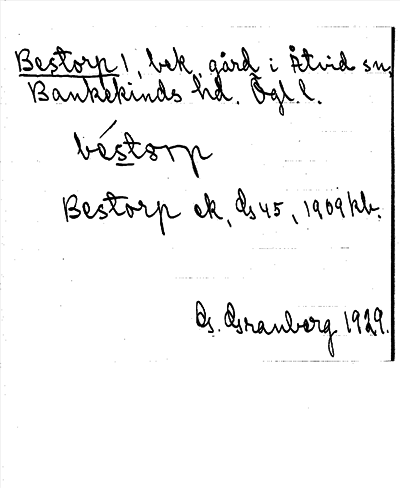 Bestorp 1, bek. gård i Åtvid sn,
Bankekinds hd. Ögl. l.
béstorp
Bestorp ek, Gs 45, 1909 kb.
G. Granberg 1929.